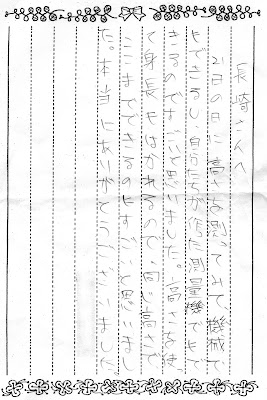 長崎さんへ
21日の日に高さを測ってみて機械で
もできるし、自分たちが作った測量機でもで
きるのですごいと思いました。高さを使っ
て身長もはかれるので、同じ高さで
ここまでできるのはすごいと思いまし
た。本当にありがとうございました。